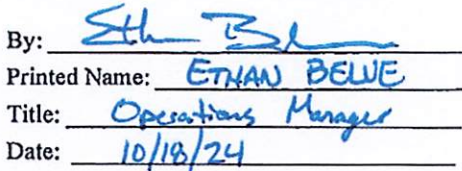 By: Ethan Belue
Printed Name: ETHAN BELUE
Title: Operations Manager
Date: 10/18/24